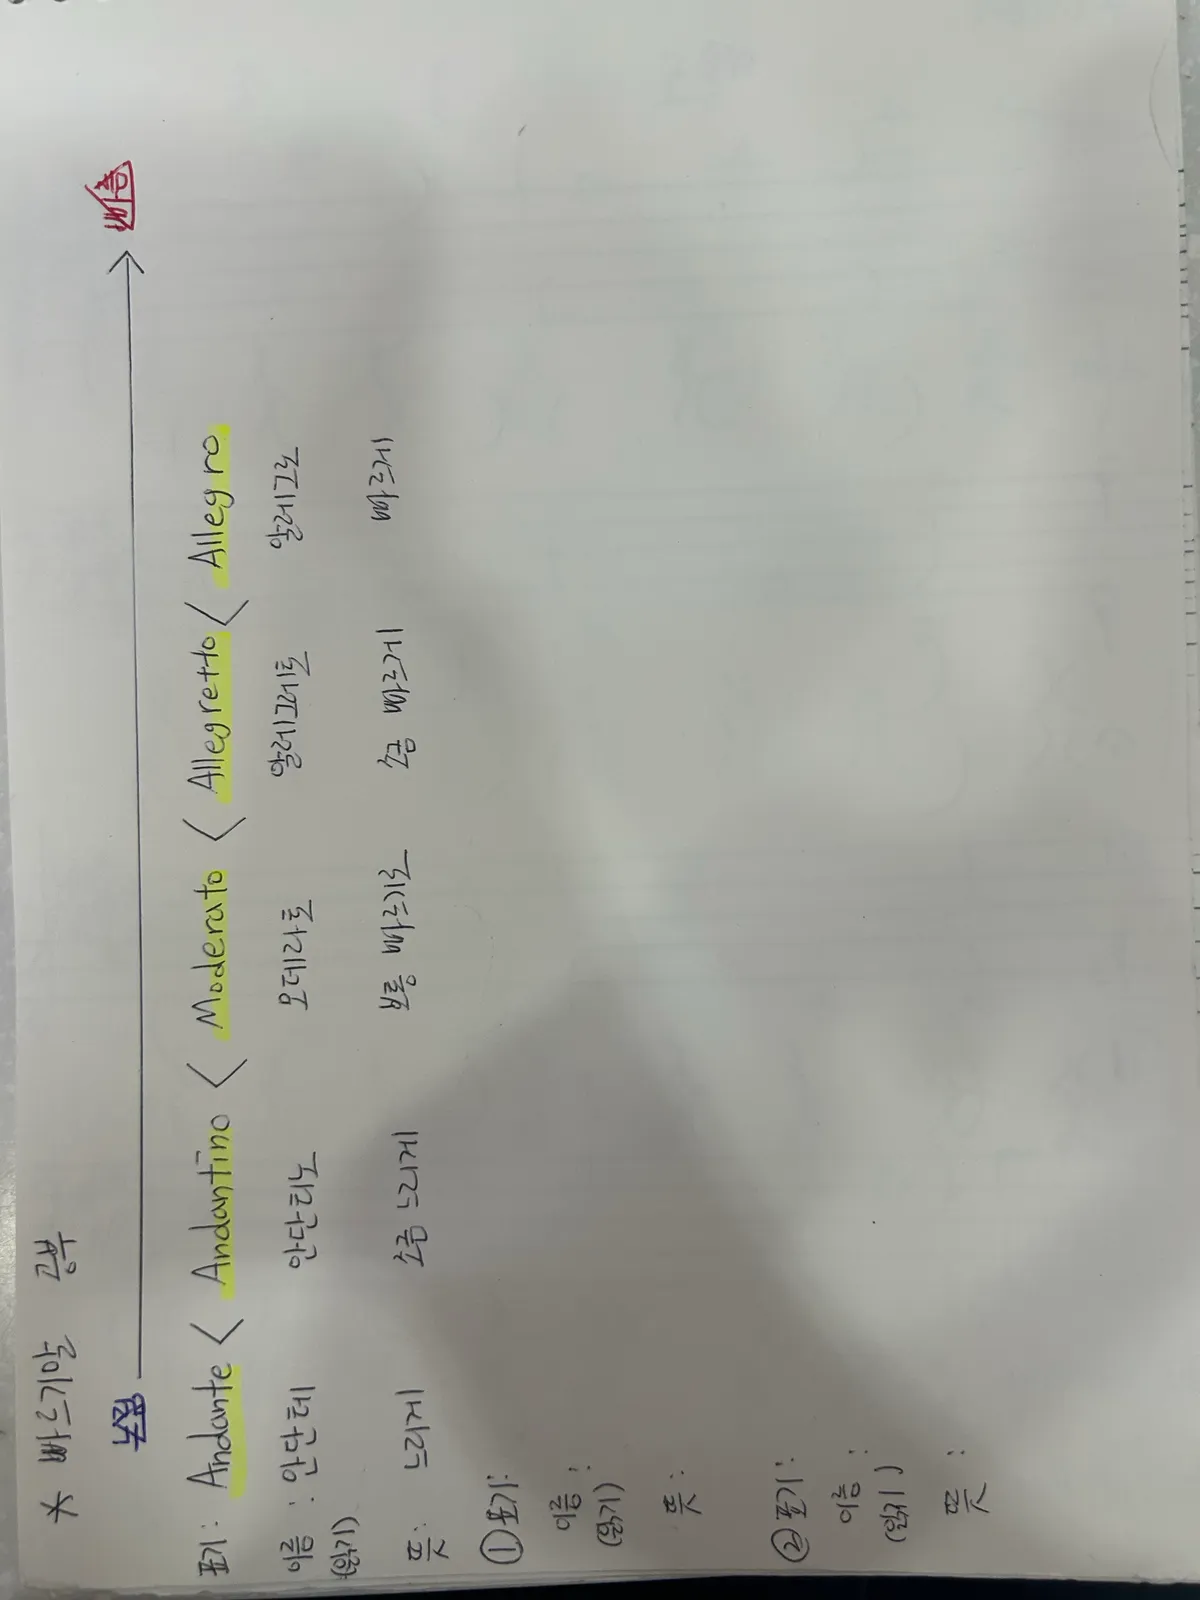 * 빠르기말 공부
늦음 → 빠름
표기 : Andante < Andantino < Moderato < Allegretto < Allegro
이름 : 안단테 안단티노 모데라토 알레그레토 알레그로
(읽기)
뜻 : 느리게 조금 느리게 보통 빠르기로 조금 빠르게 빠르게
① 표기 :
이름 :
(읽기)
뜻 :
② 표기 :
이름 :
(읽기)
뜻 :